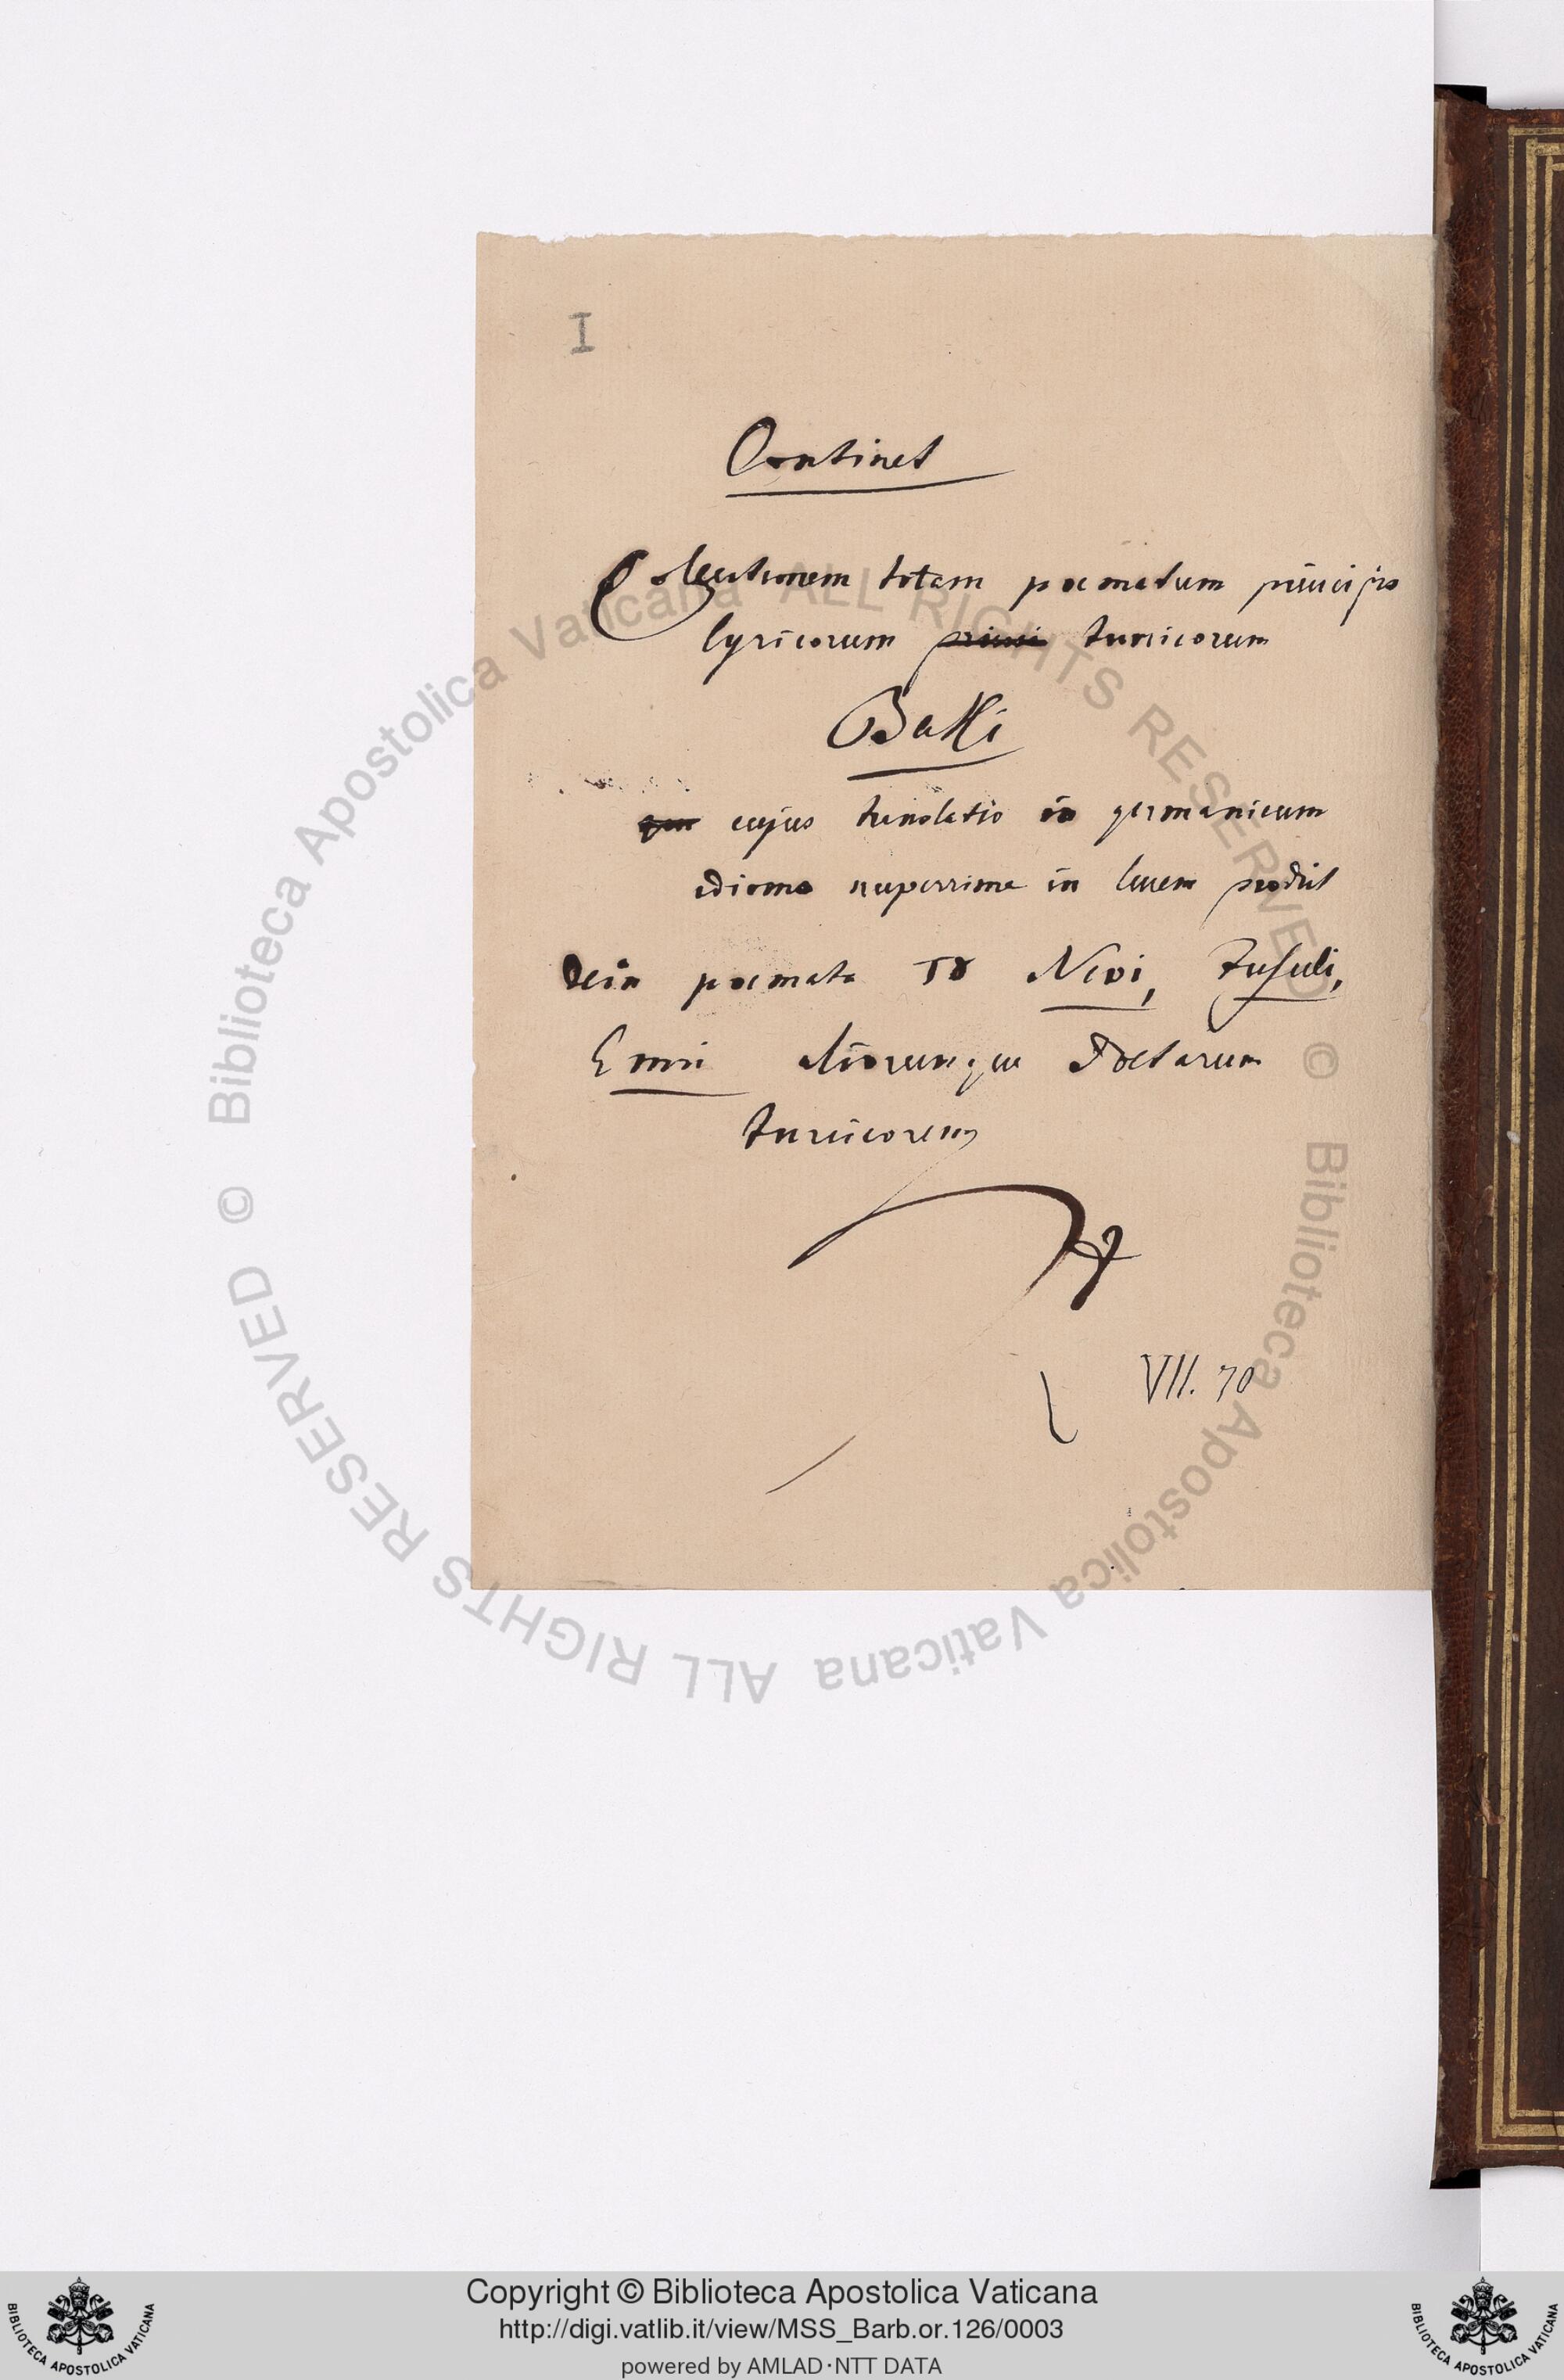 I
Continet
Collectionem totam poematum principis
lyricorum turcicorum
Baki
cujus translatio in germanicum
idioma nuperrime in lucem prodiit
Dein poemata τȣ Nevi, Fusuli,
Emri aliorumque Poetarum
turcicorum
VII. 70
© Biblioteca Apostolica Vaticana ALL RIGHTS RESERVED
© Biblioteca Apostolica Vaticana ALL RIGHTS RESERVED
Copyright © Biblioteca Apostolica Vaticana
http://digi.vatlib.it/view/MSS_Barb.or.126/0003
powered by AMLAD·NTT DATA
BIBLIOTECA APOSTOLICA VATICANA
BIBLIOTECA APOSTOLICA VATICANA